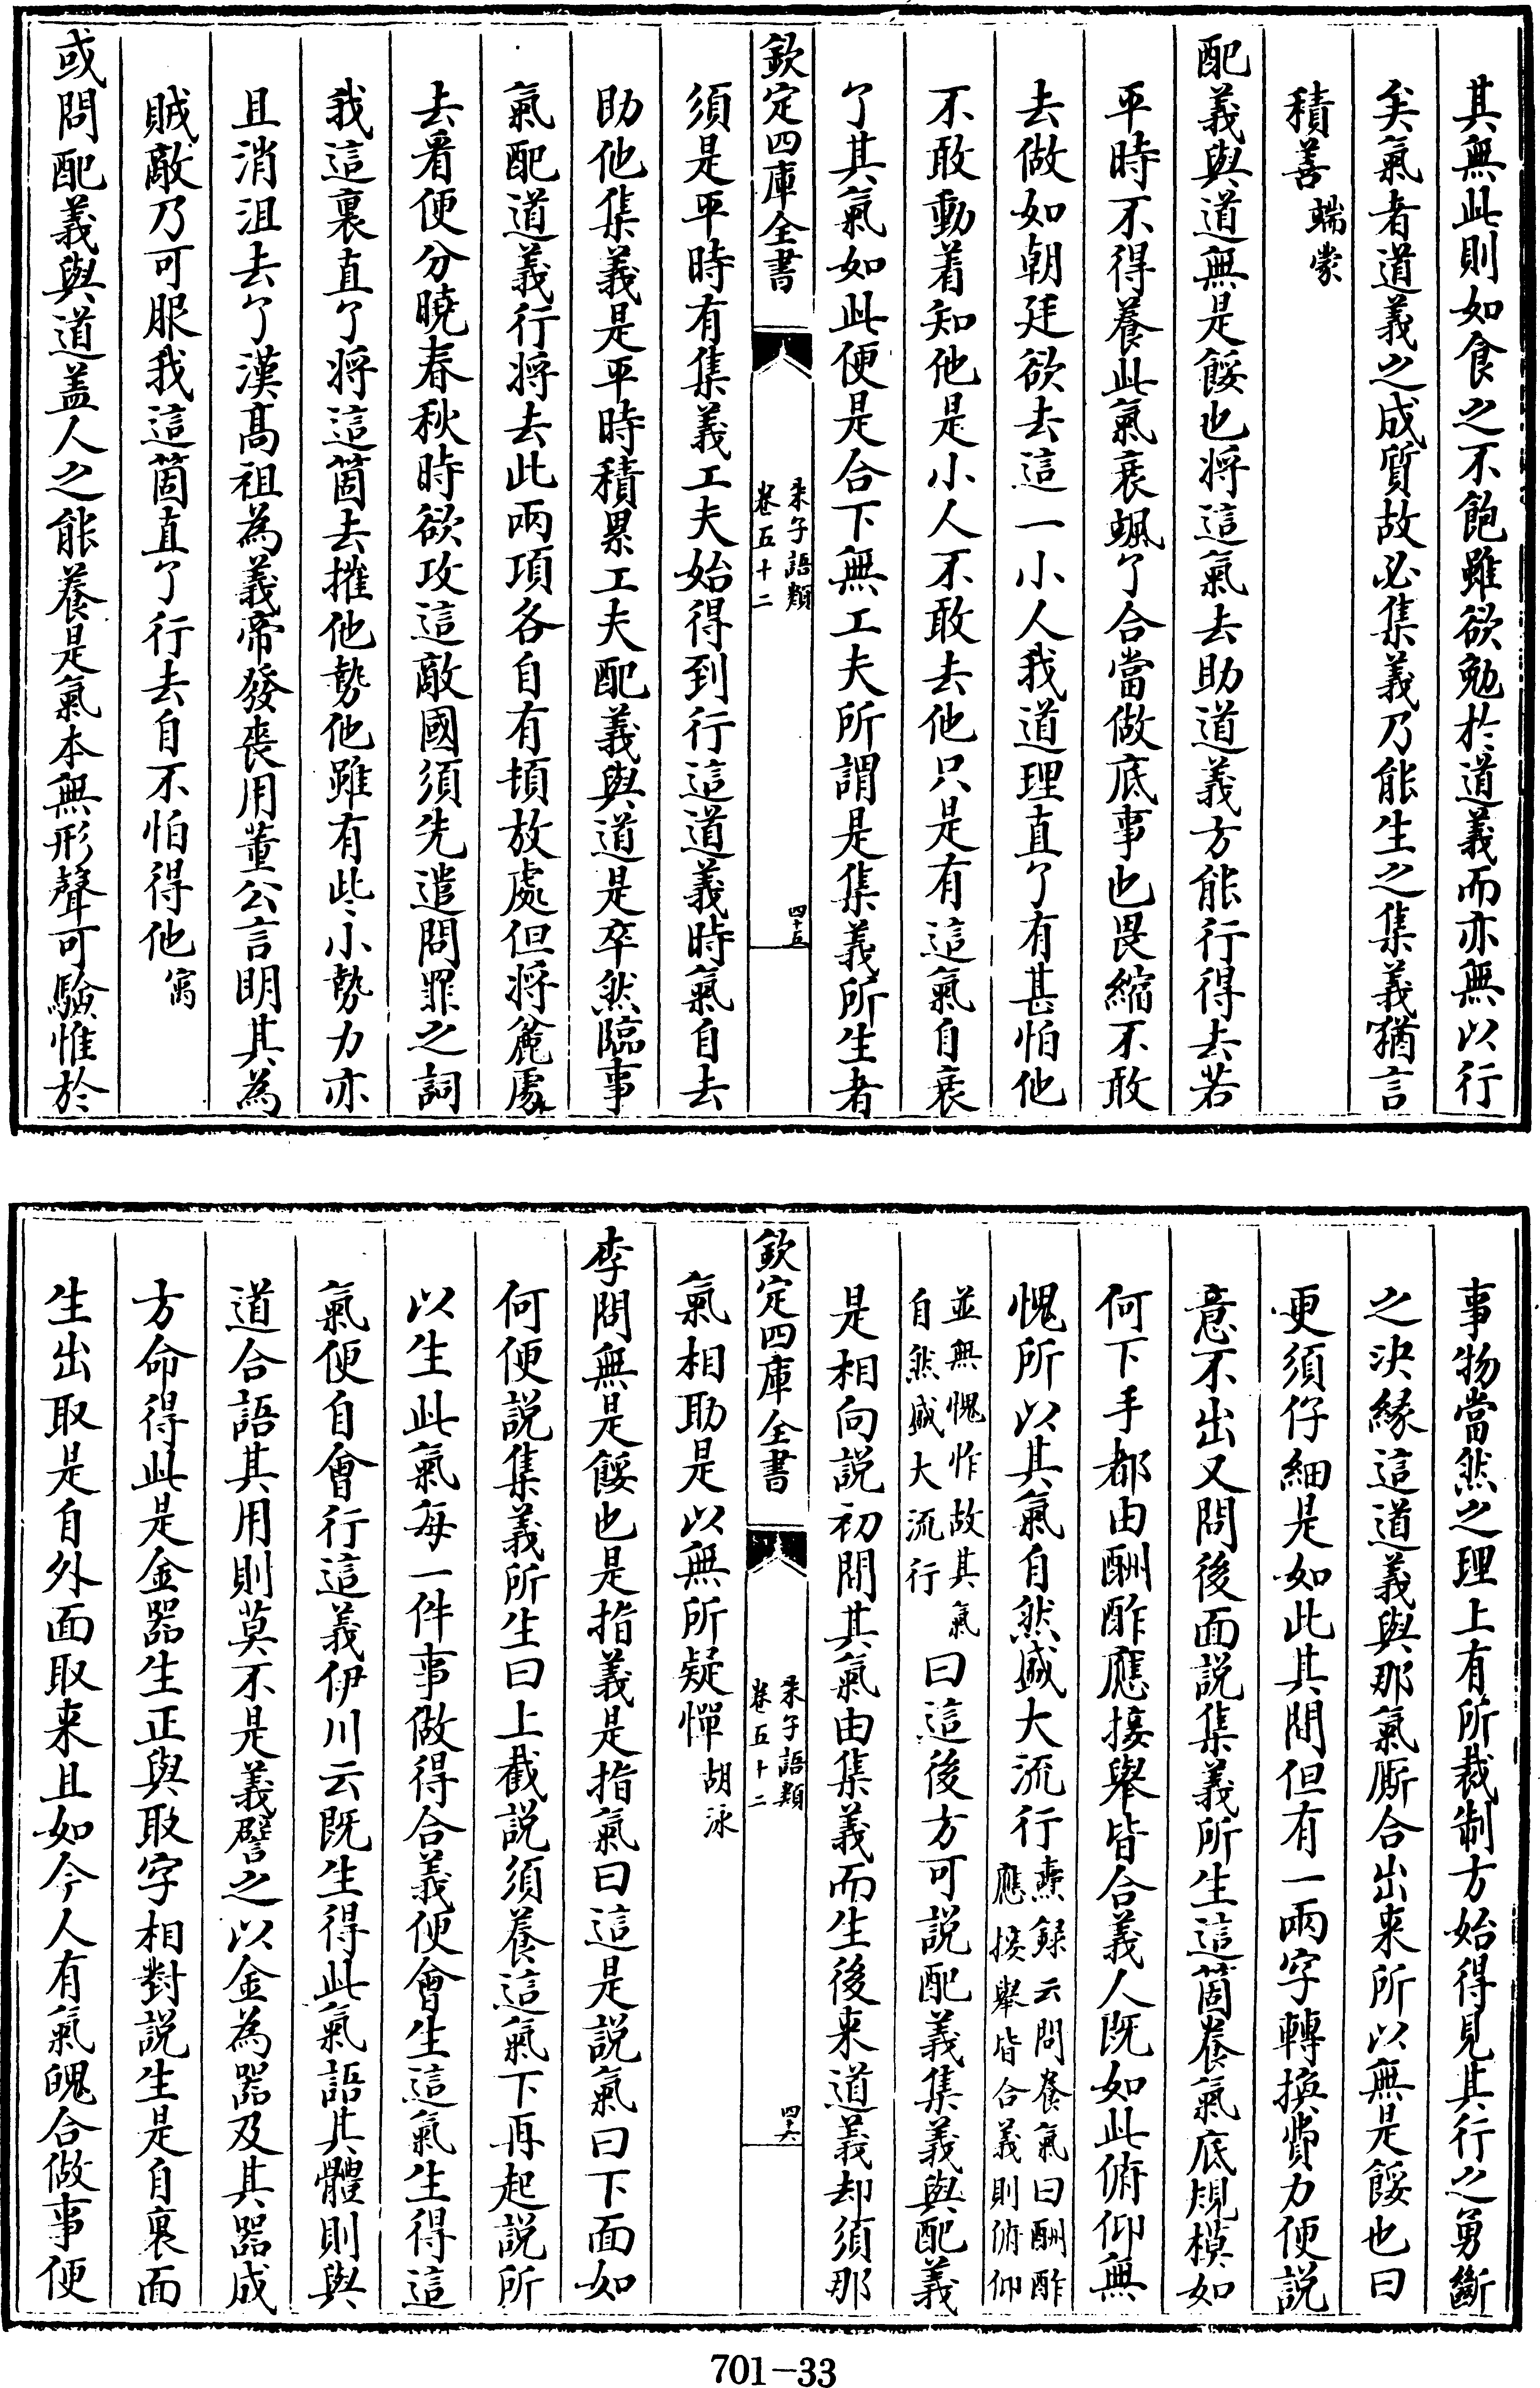 其無此則如食之不飽雖欲勉於道義而亦無以行
矣氣者道義之成質故必集義乃能生之集義猶言
積善端蒙
配義與道無是餒也將這氣去助道義方能行得去若
平時不得養此氣衰颯了合當做底事也畏縮不敢
去做如朝廷欲去這一小人我道理直了有甚怕他
不敢動着知他是小人不敢去他只是有這氣自衰
了其氣如此便是合下無工夫所謂是集義所生者
欽定四庫全書
朱子語類
卷五十二
四十五
須是平時有集義工夫始得到行這道義時氣自去
助他集義是平時積累工夫配義與道是卒然臨事
氣配道義行將去此兩項各自有頓放處但將麄處
去看便分曉春秋時欲攻這敵國須先遣問罪之詞
我這裏直了將這箇去摧他勢他雖有些小勢力亦
且消沮去了漢髙祖為義帝發喪用董公言明其為
賊敵乃可服我這箇直了行去自不怕得他㝢
或問配義與道盖人之能養是氣本無形聲可驗惟於
事物當然之理上有所裁制方始得見其行之勇斷
之決緣這道義與那氣厮合出来所以無是餒也曰
更須仔細是如此其間但有一兩字轉換費力便説
意不出又問後面説集義所生這箇養氣底規模如
何下手都由酬酢應接舉皆合義人既如此俯仰無
愧所以其氣自然盛大流行燾録云問養氣曰酬酢
應接舉皆合義則俯仰
並無愧怍故其氣
自然盛大流行
曰這後方可説配義集義與配義
是相向説初間其氣由集義而生後来道義却須那
欽定四庫全書
朱子語類
卷五十二
四十六
氣相助是以無所疑憚胡泳
李問無是餒也是指義是指氣曰這是説氣曰下面如
何便説集義所生曰上截説須養這氣下再起説所
以生此氣每一件事做得合義便會生這氣生得這
氣便自會行這義伊川云既生得此氣語其體則與
道合語其用則莫不是義譬之以金為器及其器成
方命得此是金器生正與取字相對説生是自裏面
生出取是自外面取来且如今人有氣魄合做事便
701-33